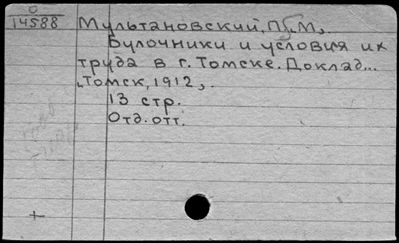 О
14588
Мультановский, П. М.,
Булочники и условия их
труда в г. Томске. Доклад...
Томск, 1912,.
13 стр.
Отд. отт.
+